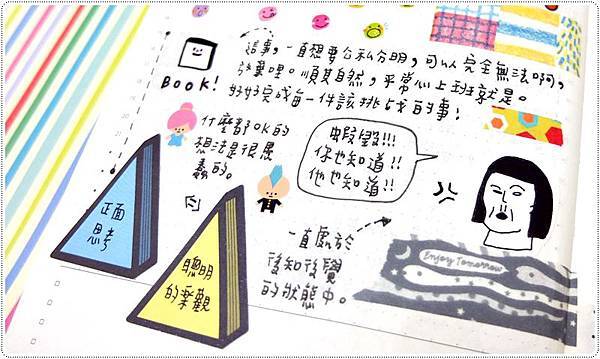 這事,一直想要公私分明,可以完全無法啊,
放棄哩。順其自然,平常心上班就是。
好好完成每一件該挑戰的事!
BOOK!
什麼都OK的
想法是很愚
蠢的。
蝦毀!!!
你也知道!!
他也知道!!
正面
思考
聰明
的樂觀
一直處於
後知後覺
的狀態中。
Enjoy Tomorrow